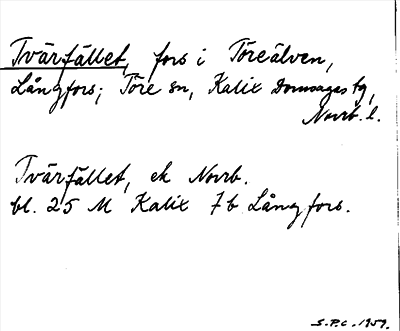 Tvärfället, fors i Töreälven,
Långfors; Töre sn, Kalix Domsagas tg,
Norrb. l.
Tvärfället, ek Norrb.
bl. 25 M Kalix 7b Långfors.
S.P.C. 1959.